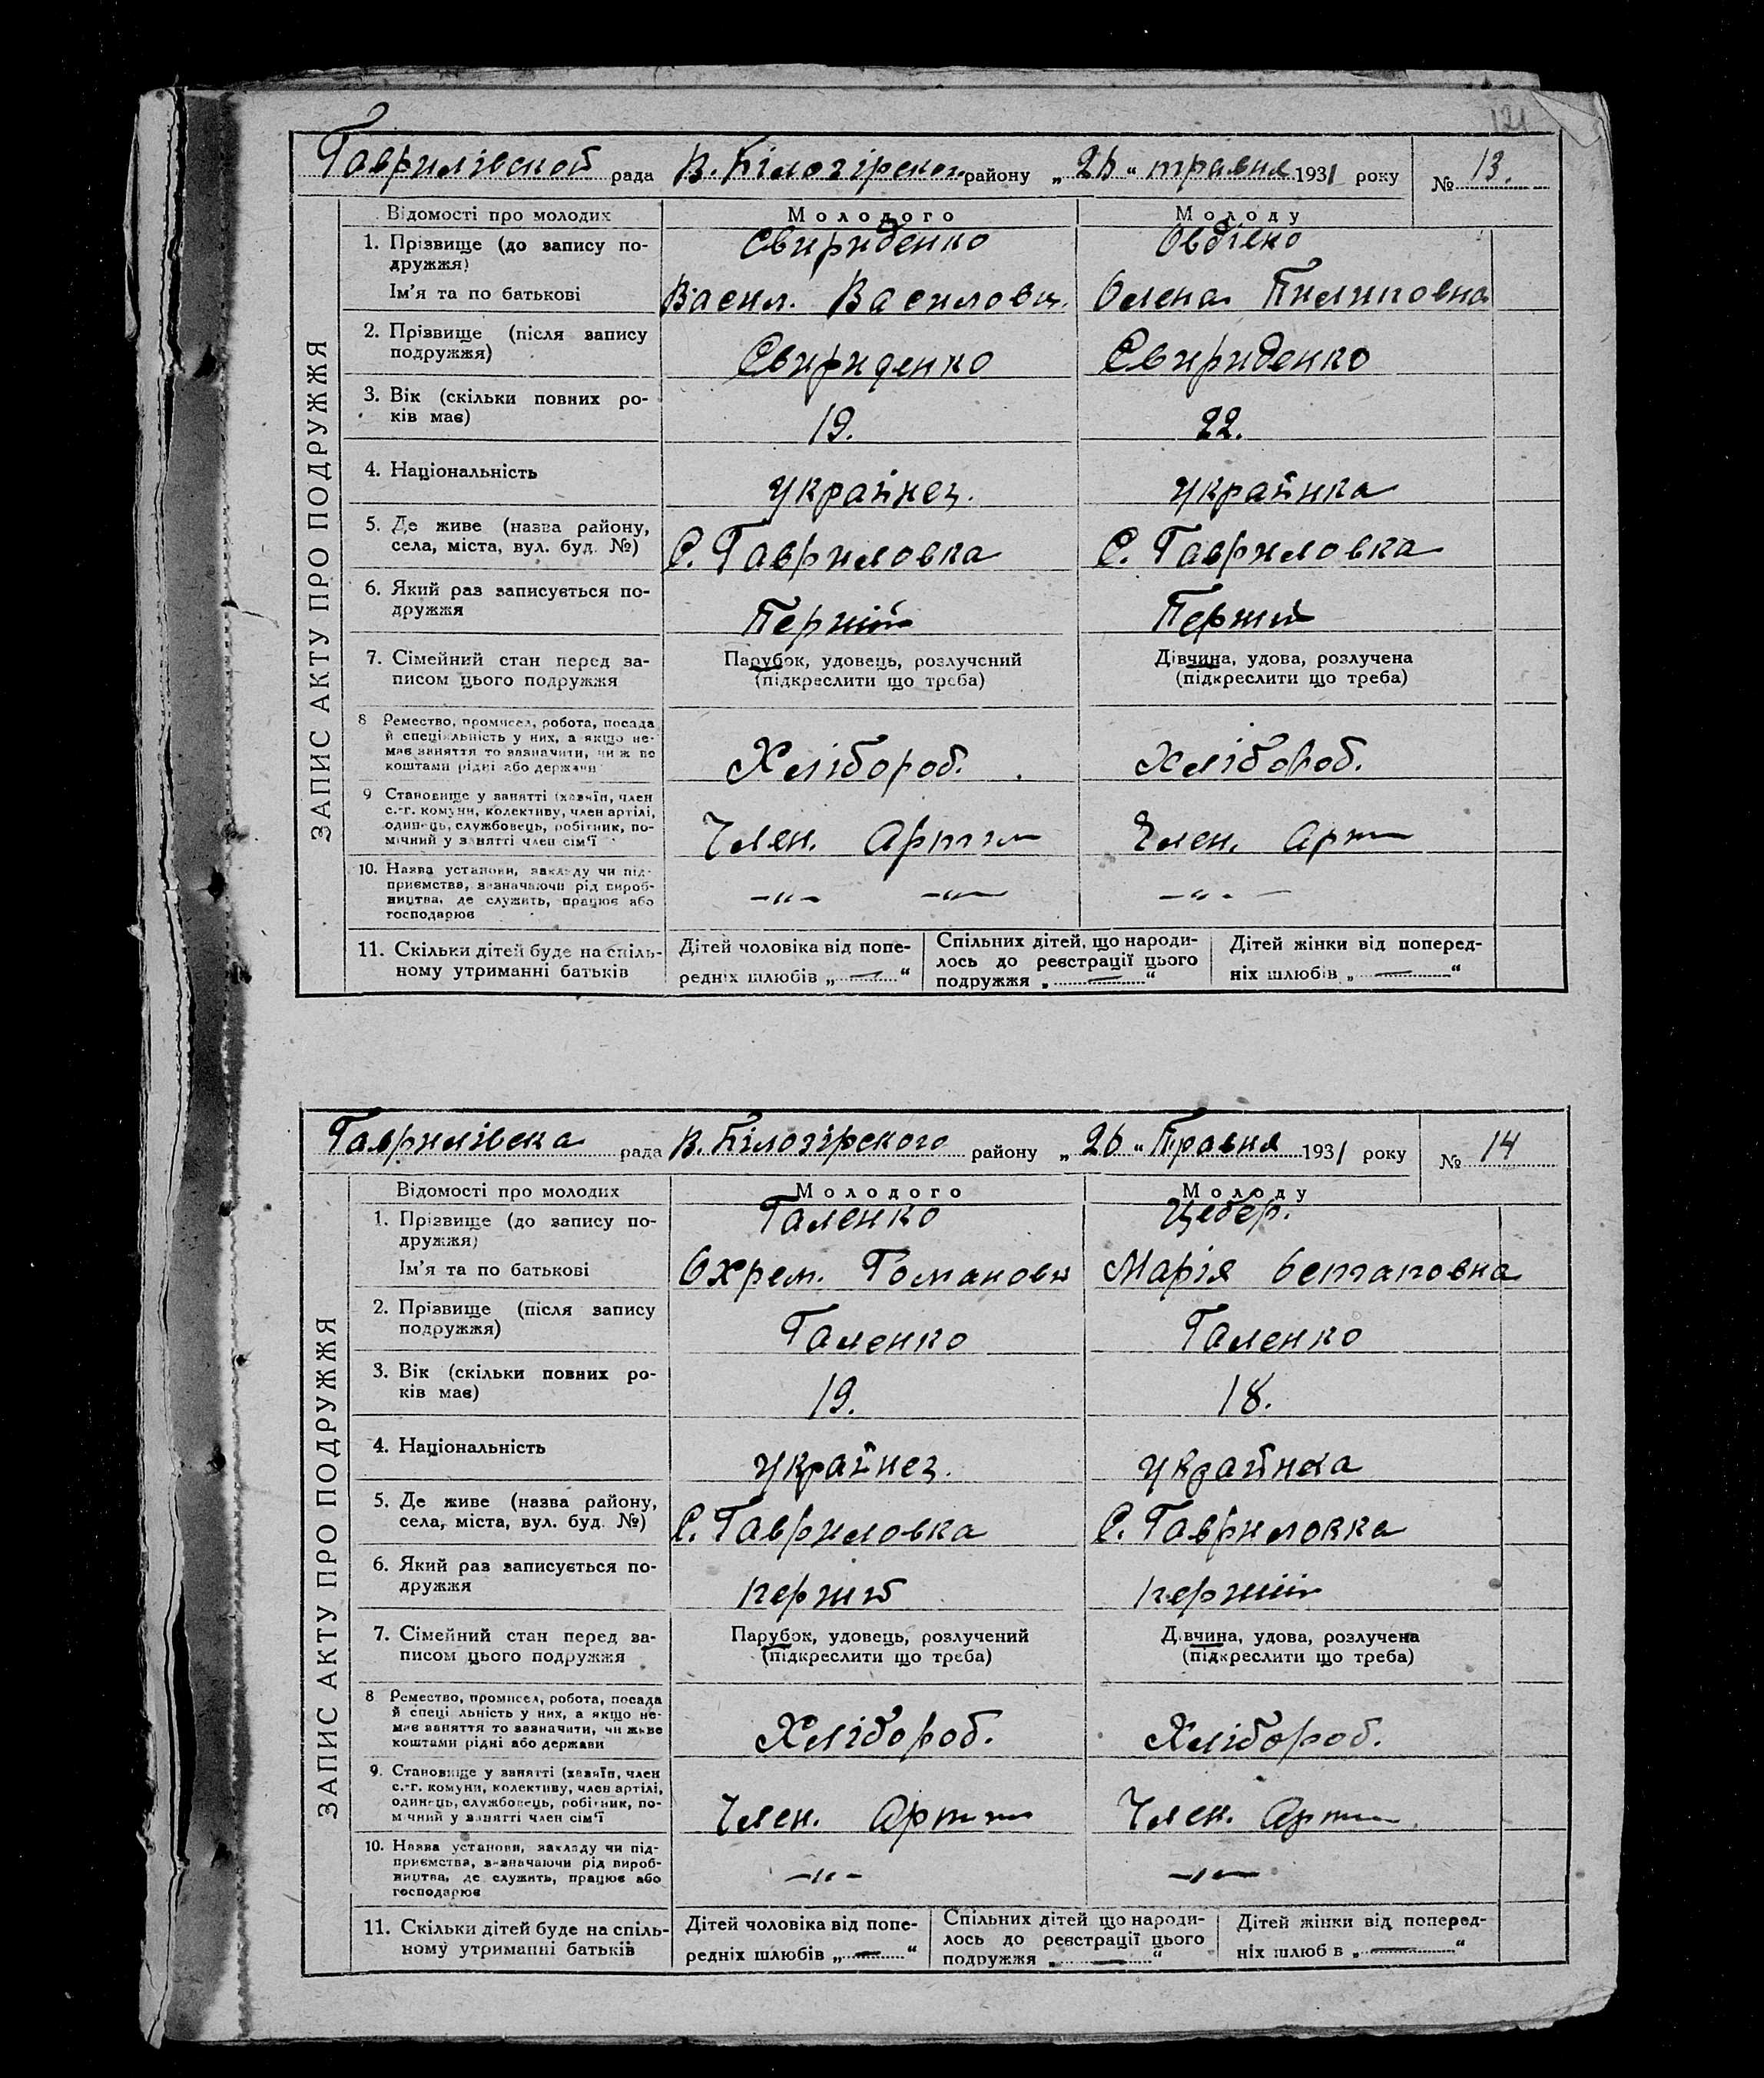 121
Гаврилівской рада В. Білозірского району „ 26 “ травня 1931 року № 13.
ЗАПИС АКТУ ПРО ПОДРУЖЖЯ
Відомості про молодих Молодого Молоду
1. Прізвище (до запису по- Свириденко Овдієнко
дружжя)
Ім'я та по батькові Васил. Василови. Олена Пилиповна
2. Прізвище (після запису
подружжя) Свириденко Свириденко
3. Вік (скільки повних ро-
ків має) 19. 22.
4. Національність Украйнец. Украйнка
5. Де живе (назва району,
села, міста, вул. буд. №) С. Гавриловка С. Гавриловка
6. Який раз записується по-
дружжя Перший Перший
7. Сімейний стан перед за- Парубок, удовець, розлучений Дівчина, удова, розлучена
писом цього подружжя (підкреслити що треба) (підкреслити що треба)
8 Ремество, промисел, робота, посада
й спеціяльність у них, а якщо не-
має заняття то зазначити, чи ж по
коштами рідні або держави Хлібороб. Хлібороб.
9 Становище у занятті (хазяїн, член
с.-г. комуни, колективу, член артілі,
одинець, службовець, робітник, по-
мічний у занятті член сім'ї Член. Артил Член. Арт
10. Назва установи, закладу чи під-
приємства, зазначаючи рід вироб-
ництва, де служить, працює або -„- -„- -„-
господарює
11. Скільки дітей буде на спіль- Дітей чоловіка від попе- Спільних дітей, що народи- Дітей жінки від поперед-
ному утриманні батьків редніх шлюбів „ — “ лось до реєстрації цього ніх шлюбів „ — “
подружжя „ — “
Гаврилівска рада В. Білозірского району „ 26 “ Травня 1931 року № 14
ЗАПИС АКТУ ПРО ПОДРУЖЖЯ
Відомості про молодих Молодого Молоду
1. Прізвище (до запису по- Галенко Цебер.
дружжя)
Ім'я та по батькові Охрем. Романови Марія Остаповна
2. Прізвище (після запису
подружжя) Галенко Галенко
3. Вік (скільки повних ро-
ків має) 19. 18.
4. Національність Украйнец. Украйнка
5. Де живе (назва району,
села, міста, вул. буд. №) С. Гавриловка С. Гавриловка
6. Який раз записується по-
дружжя перший перший
7. Сімейний стан перед за- Парубок, удовець, розлучений Дівчина, удова, розлучена
писом цього подружжя (підкреслити що треба) (підкреслити що треба)
8 Ремество, промисел, робота, посада
й спеціяльність у них, а якщо не-
має заняття то зазначити, чи живе
коштами рідні або держави Хлібороб. Хлібороб.
9. Становище у занятті (хазяїн, член
с.-г. комуни, колективу, член артілі,
одинець, службовець, робітник, по-
мічний у занятті член сім'ї Член. Артил Член. Арти
10. Назва установи, закладу чи під-
приємства, зазначаючи рід вироб-
ництва, де служить, працює або -„- -„-
господарює
11. Скільки дітей буде на спіль- Дітей чоловіка від попе- Спільних дітей що народи- Дітей жінки від поперед-
ному утриманні батьків редніх шлюбів „ — “ лось до реєстрації цього ніх шлюбів „ — “
подружжя „ — “